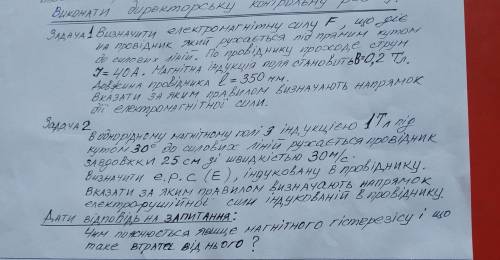 Виконати директорську контрольну
Задача 1 Визначити електромагнітну силу F, що діє
на провідник який рухається під прямим кутом
до силових ліній. По провіднику проходе струм
I=40А. Магнітна індукція поля становить B=0,2 Тл.
Довжина провідника l=350 мм.
Вказати за яким правилом визначають напрямок
дії електромагнітної сили.
Задача 2
В однорідному магнітному полі з індукцією 1Тл під
кутом 30° до силових ліній рухається провідник
завдовжки 25 см зі швидкістю 30м/с.
Визначити е.р.с. (Е), індуковану в провіднику.
Вказати за яким правилом визначають напрямок
електрорушійної сили індукованій в провіднику.
Дати відповідь на запитання:
Чим пояснюється явище магнітного гістерезісу і що
таке втрата від нього?